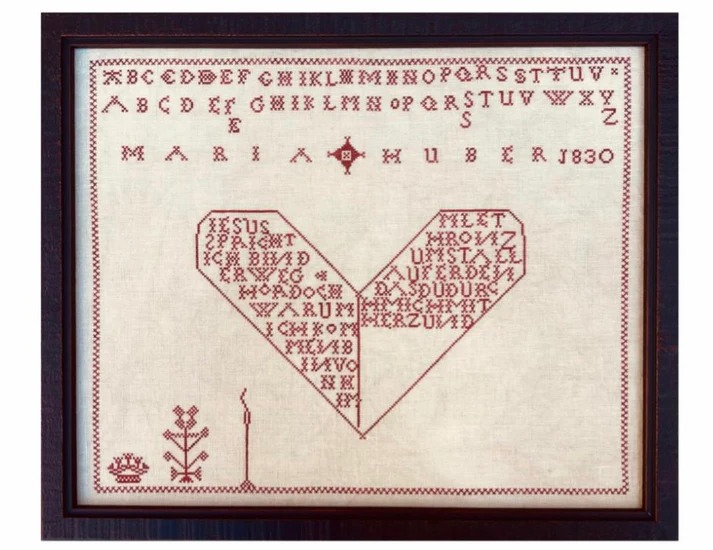 A B C C D D E F G H I K L M M N N O P Q R S S T T U V
A B C D E F G H I K L M N O P Q R S T U V W X Y
E S Z
MARIA HUBER 1830
IESUS
SPRICHT
ICH BIN D
ER WEG
HORDOCH
WARUM
ICHKOM
MENB
INVO
NH
IM
MLET
HRONZ
UMSTALL
AUFERDEN
DASDUDURC
HMICHMIT
HERZUND